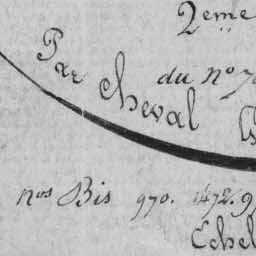 2eme
du No 7
Par Cheval
nos Bis 970. 1472. 9
Echel